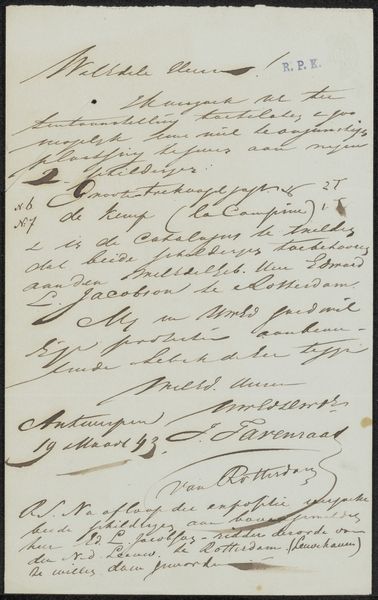 WelEdele Heeren!
R.P.K.
Ik verzoek UE ter
tentoonstelling toetelaten & zoo
mogelijk eene niet te ongunstige
plaatsing te geven aan mijne
2 schilderijen
N 6 Groote trekvogeljagt
N 7 de Kemp (la Campine)
& in de catalogus te melden
dat beide schilderijen toebehooren
aan den WelEdelGeb. Heer Edward
L. Jacobson te Rotterdam.
Mij in UwEd goedwil
protectie aanbeve-
lende heb ik de eer te zijn
WelEd. Heeren
UwEdDwDr
Antwerpen
19 Maart 43. J. Tavenraat
van Rotterdam
P.S. Na afloop der expositie verzoeke
beide schilderijen aan bovengemelden
heer Ed. L. Jacobson ridder der orde van
den Ned Leeuw. te Rotterdam (Leuvehaven)
te willen doen geworden